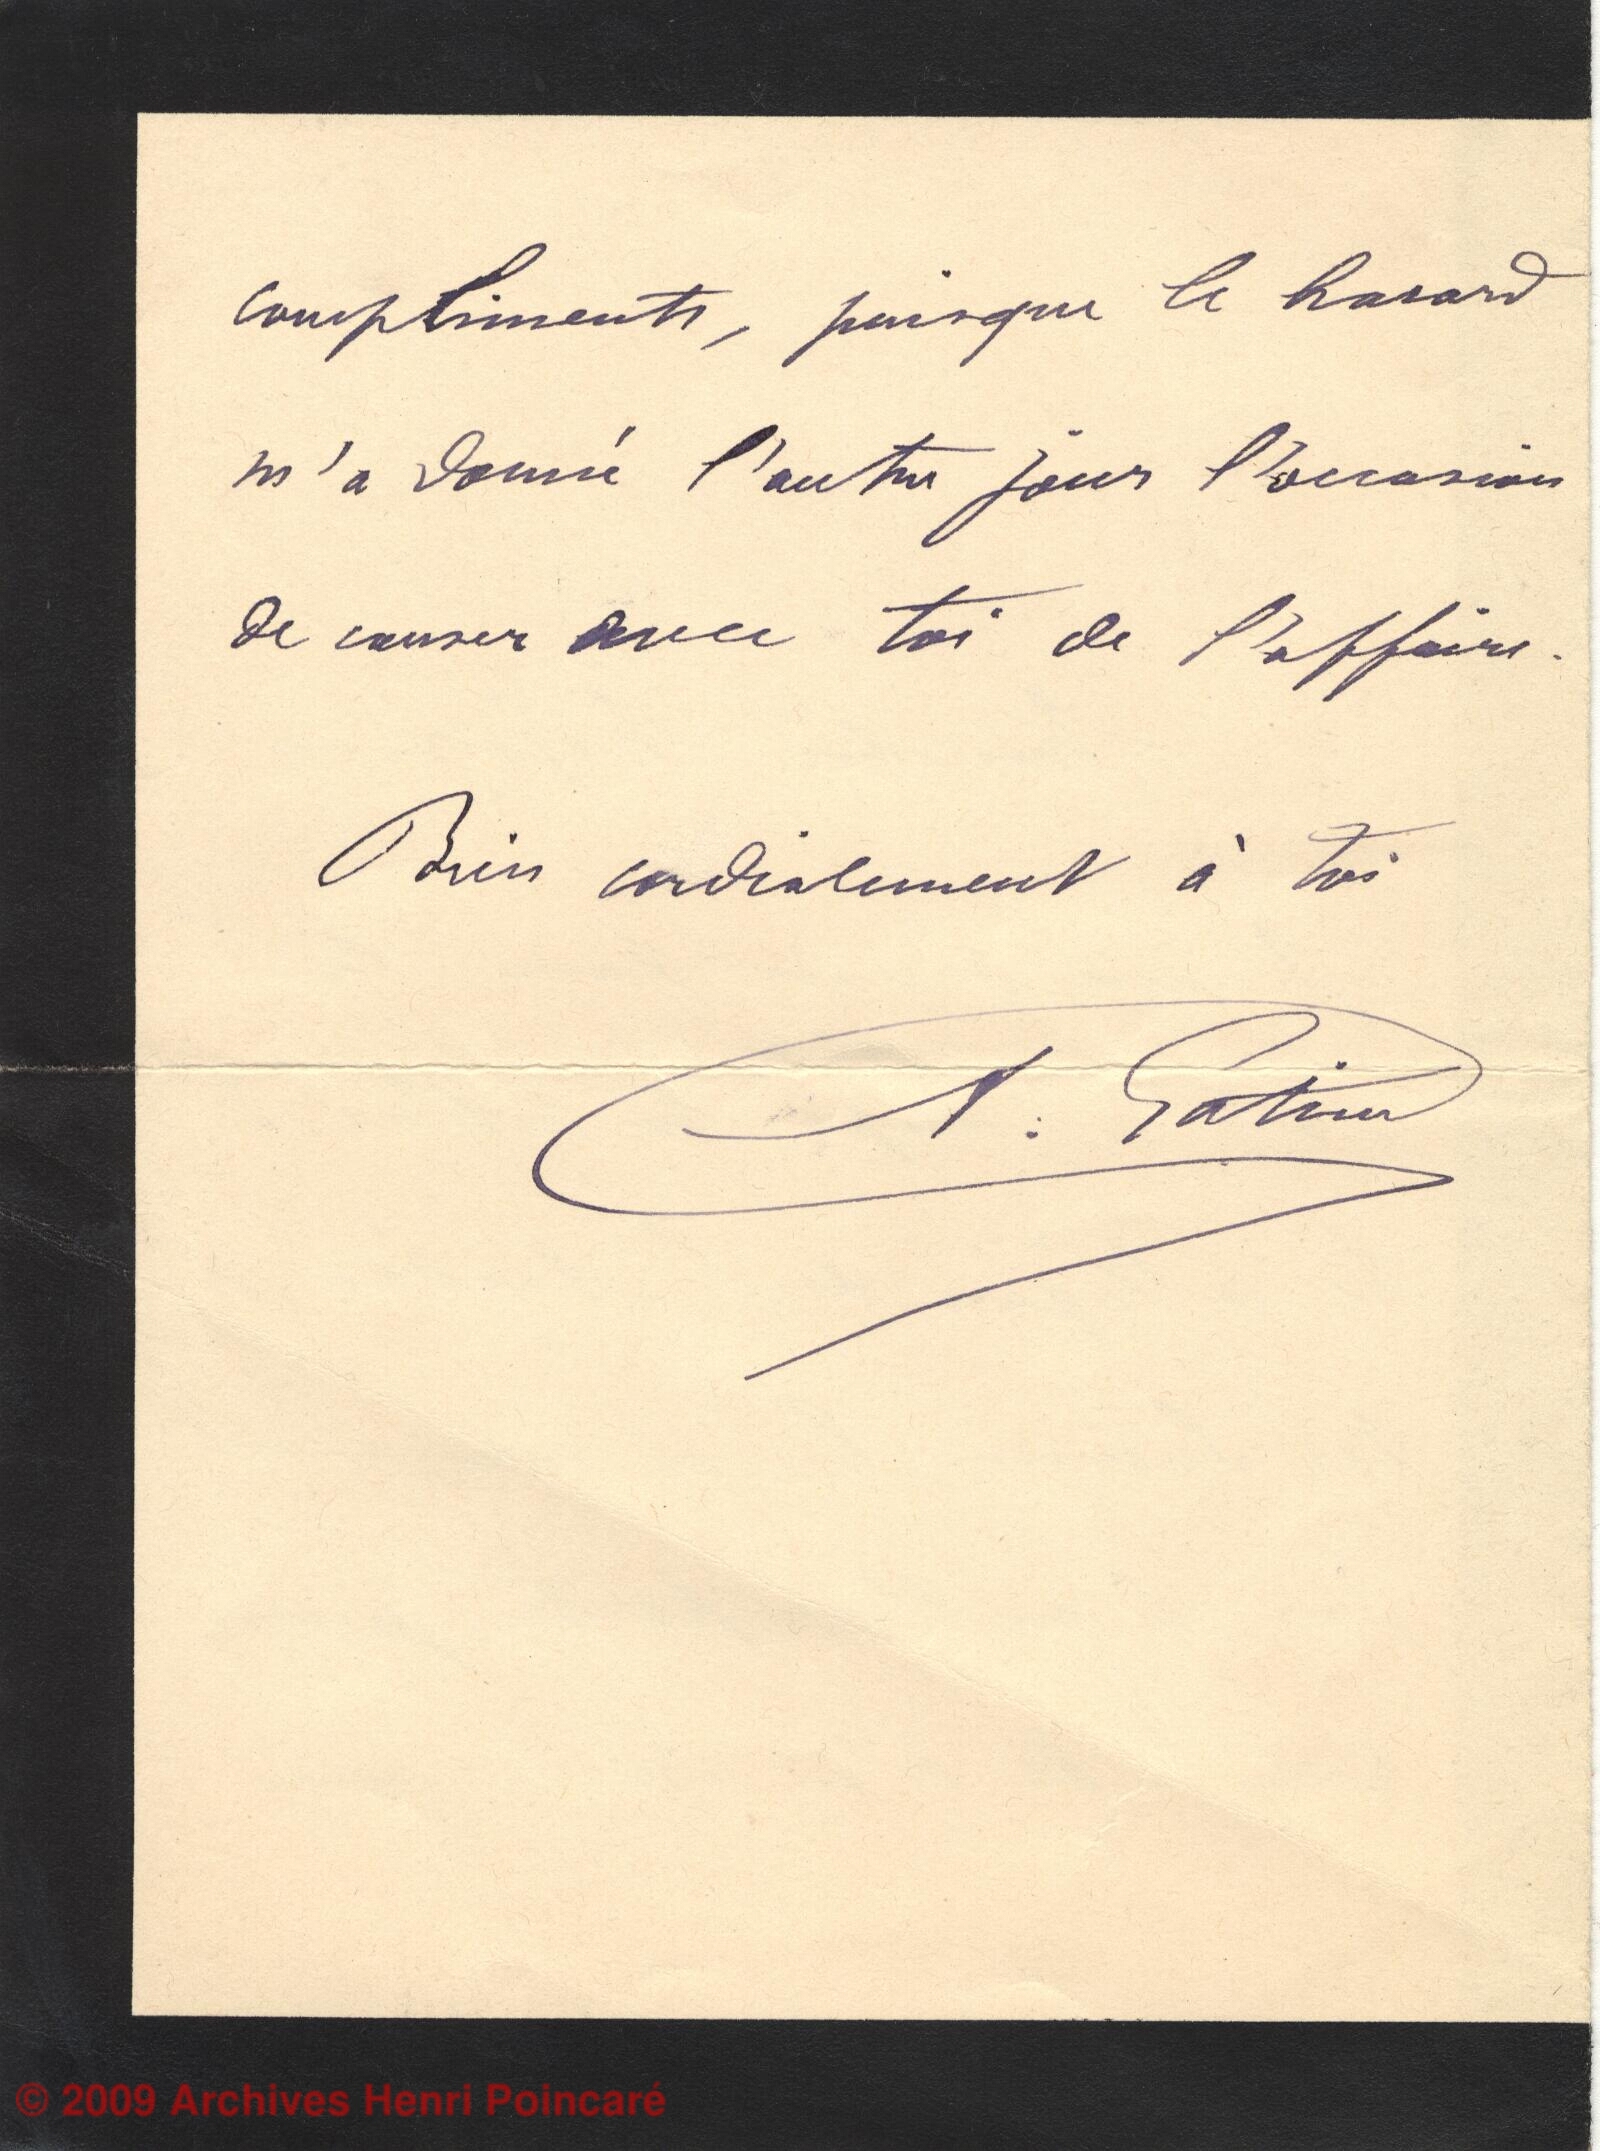 compliments, puisque le hasard
m'a donné l'autre jour l'occasion
de causer avec toi de l'affaire.
Bien cordialement à toi
A. Gatine
© 2009 Archives Henri Poincaré